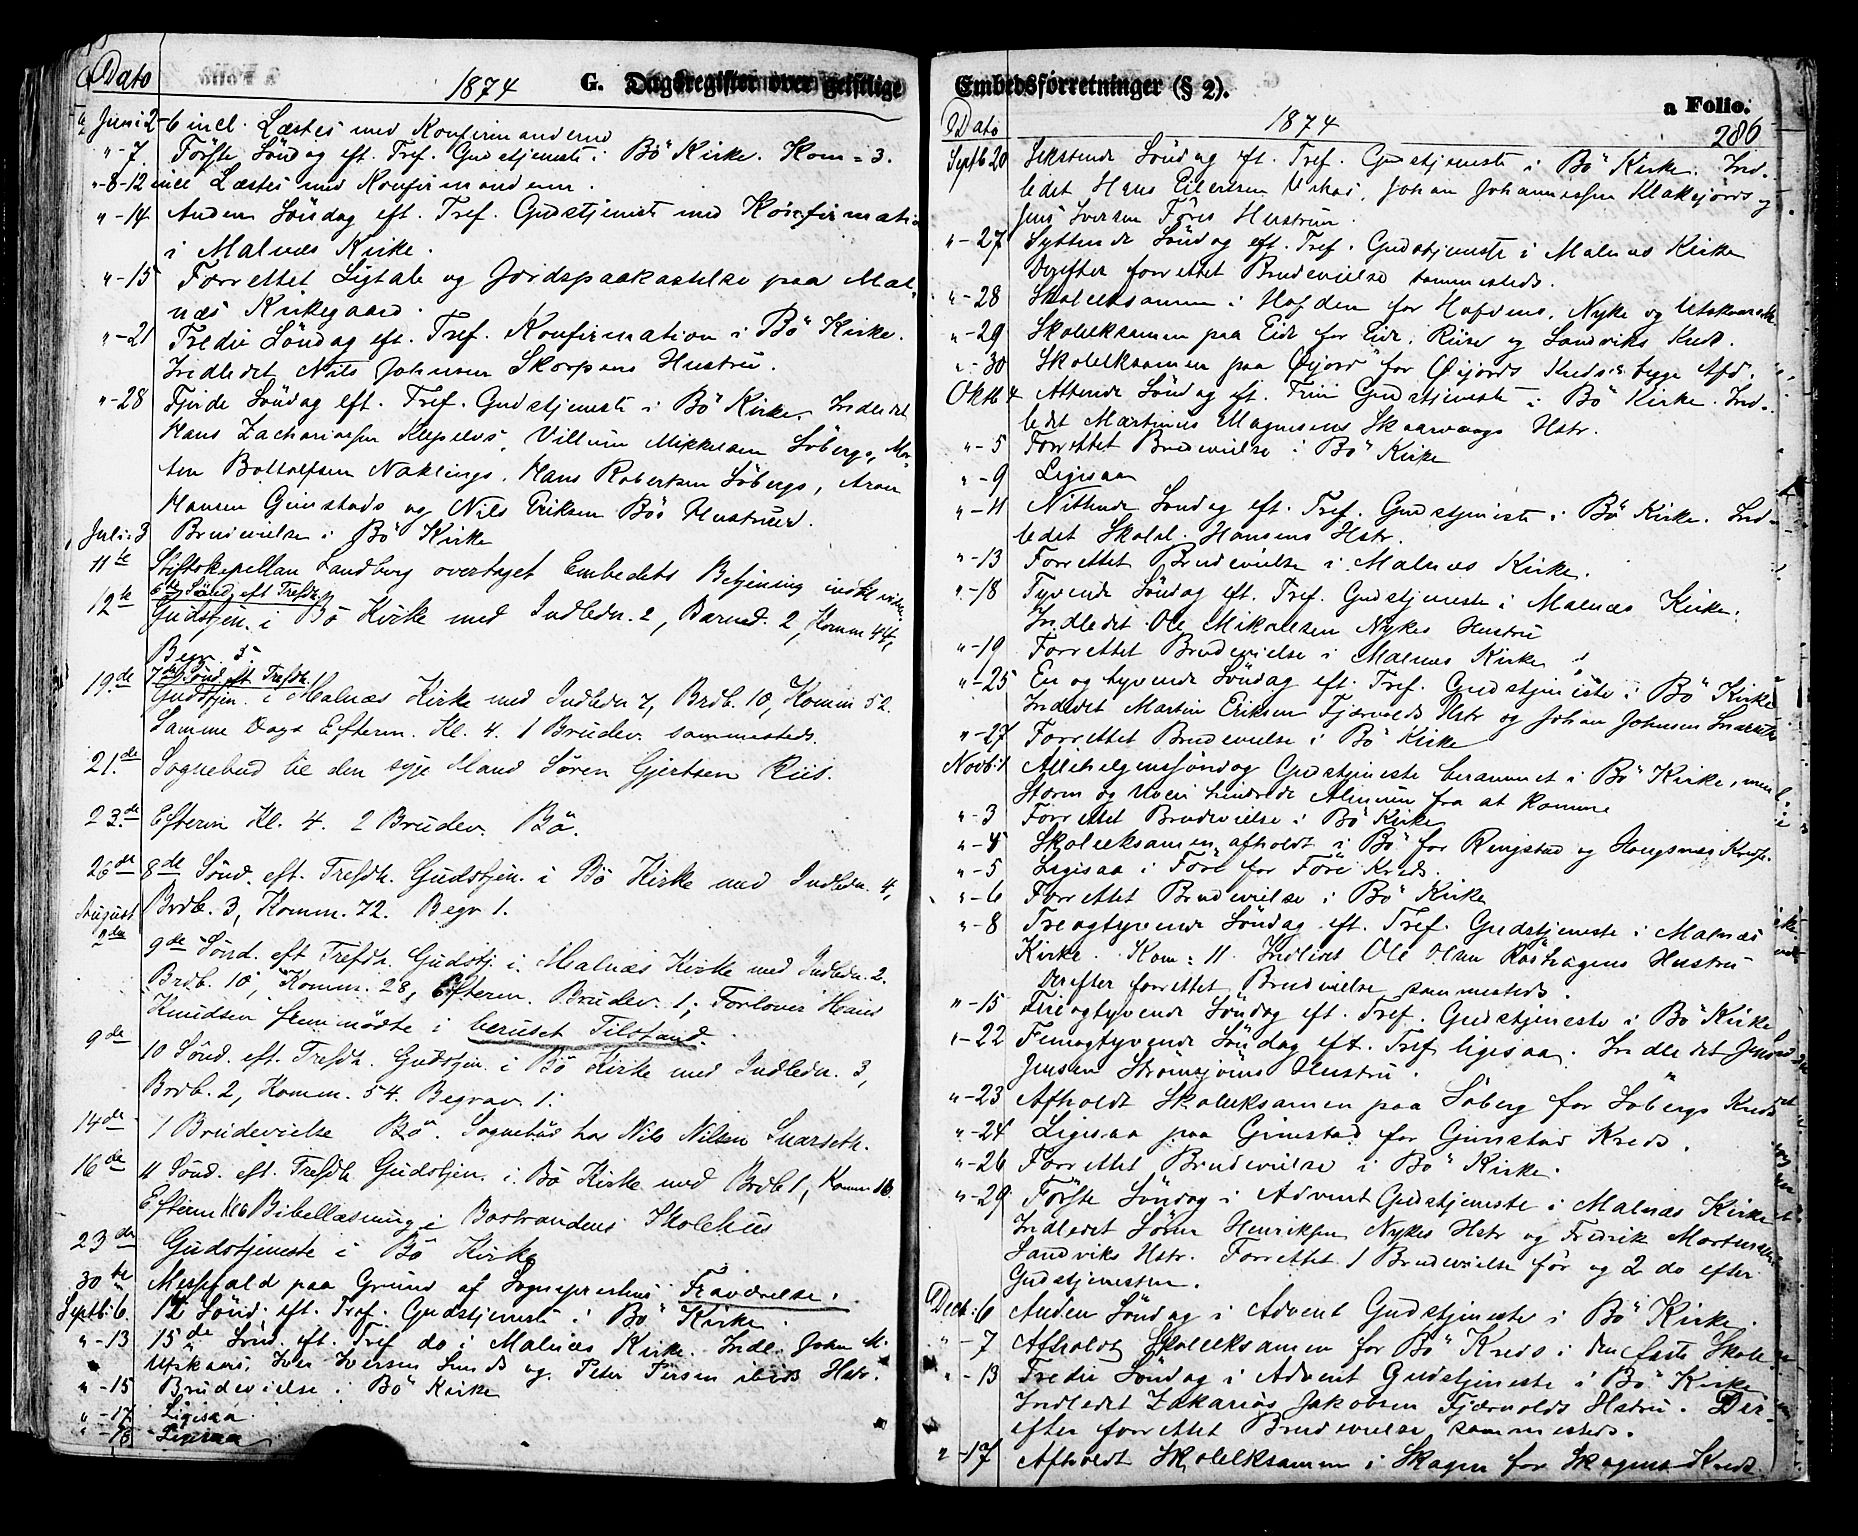 Dato
1874 G. Dagsregister over geistlige
Juni 2-6 incl. Læstes med Konfirmanderne
"-7. Förste Söndag eft. Tref. Gudstjeneste i Bö Kirke. Kom = 3.
"-8-12 incl Læstes med Konfirmanderne.
"-14 Anden Söndag eft. Tref. Gudstjeneste med Konfirmation
i Malnæs Kirke.
"-15 Forrettet Ligtale og Jordspaakastelse paa Mal-
næs Kirkegaard.
"-21 Tredie Söndag eft. Tref. Konfirmation i Bö Kirke.
Indledet Nils Johnsen Skorpens Hustru.
"-28 Fjerde Söndag eft. Tref. Gudstjeneste i Bö Kirke. Indledet
Hans Zachariassen Klepels, Villum Mikkelsen Söbergs, Mor-
ten Bottolfsen Naklings, Hans Robertsen Söbergs, Aron
Hansen Gimstads og Nils Eriksen Bös Hustruer.
Juli: 3 Brudevielse i Bö Kirke
11te Stiftskapellan Landberg overtaget Embedets Betjening
12te 6te Sönd. eft Trefdh.
Gudstjen. i Bö Kirke med Indledn. 2, Barned. 2, Komm 44,
Begr. 5.
19de 7de Sönd. eft Trefdh.
Gudstjen. i Malnæs Kirke med Indledn 7, Brdb. 10, Komm 52.
Samme Dags Efterm. Kl. 4. 1 Brudev. sammesteds.
21.de Sognebud til den syge Mand Sören Gjertsen Riis.
23.de Efterm Kl. 4. 2 Brudev. Bö.
26de 8de Sönd. eft. Trefdh. Gudstjen. i Bö Kirke med Indledn. 4,
Brdb. 3, Komm. 72. Begr 1.
August
2den 9de Sönd. eft Trefdh. Gudstj. i Malnæs Kirke med Indledn. 2.
Brdb. 10, Komm. 28, Efterm. Brudev. 1; Forlover Hans
Knudsen fremmödte i beruset Tilstand.
9de 10 Sönd. eft. Trefdh. Gudstjen. i Bö Kirke med Indledn. 3,
Brdb. 2, Komm. 54. Begrav. 1.
14de 1 Brudevielse Bö. Sognebud hos Nils Nilsen Snarseth.
16de 11 Sönd. eft. Trefdh. Gudstjen. i Bö Kirke med Brdb 1, Komm 16.
Efterm Kl 6 Bibellæsning i Bostrandens Skolehus
23de Gudstjeneste i Bö Kirke
30te Messefald paa Grund af Sogneprestens Fraværelse.
Septb: 6. 14 Sönd. eft. Tref. Gudstjeneste i Bö Kirke.
"-13 15de Sönd. eft. Tref do i Malnæs Kirke. Indl. John M.
Uvkaas, Iver Iversen Sunds og Peter Persen ibids Hstr.
"-15 Brudevielse i Bö Kirke
"-17 Ligesaa
"-18 Ligesaa
Embedsforretninger (§ 2).
a Folio.
Dato 1874 286
Septb 20 Sekstende Söndag eft. Tref. Gudstjeneste i Bö Kirke. Ind-
ledet Hans Eilertsen Uvkas, Johan Johannessen Klaksjords og
Jens Iversen Föres Hustruer.
"-27 Syttende Söndag eft. Tref. Gudstjeneste i Malnæs Kirke
Derefter forrettet Brudevielse sammesteds.
"-28 Skoleeksamen i Hofden for Hofdens, Nyke og
"-29 Skoleeksamen paa Eide for Eide, Riise og Sandviks Kreds.
"-30 Skoleeksamen paa Öijord for Öijords Kredses begge Afd.
Oktb 4 Attende Söndag eft. Tref Gudstjeneste i Bö Kirke. Ind-
ledet Martinus Magnesens Skaarvaags Hstr.
"-5 Forrettet Brudevielse i Bö Kirke
"-9 Ligesaa
"-11 Nittende Söndag eft. Tref. Gudstjeneste i Bö Kirke. Ind-
ledet Skolel. Hansens Hstr.
"-13 Forrettet Brudevielse i Malnæs Kirke.
"-18 Tyvende Söndag eft. Tref. Gudstjeneste i Malnæs Kirke.
Indledet Ole Mikalsen Nykes Hustru
"-19 Forrettet Brudevielse i Malnæs Kirke
"-25 En og tyvende Söndag eft. Tref. Gudstjeneste i Bö Kirke
Indledet Martin Eriksen Fjærvolds Hstr og Johan Johnsen
"-27 Forrettet Brudevielse i Bö Kirke
Novb: 1 Allehelgenssöndag Gudstjeneste berammet i Bö Kirke, men
Storm og Uveir hindrede Almuen fra at komme
"-3 Forrettet Brudevielse i Bö Kirke
"-4 Skoleeksamen afholdt i Bö for Ringstad og Haugsnæs Kreds.
"-5 Ligesaa i Före for Före Kreds.
"-6 Forrettet Brudevielse i Bö Kirke
"-8 Treogtyvende Söndag eft. Tref. Gudstjeneste i Malnæs
Kirke. Kom: 11. Indledet Ole Olsen Röshagens Hustru
Derefter forrettet Brudevielse sammesteds.
"-15 Fireogtyvende Söndag eft. Tref. Gudstjeneste i Bö Kirke
"-22 Femogtyvende Söndag eft. Tref ligesaa. Indledet
Jensen Strömsjöens Hustru.
"-23 Afholdt Skoleeksamen paa Söberg for Söbergs Kreds
"-24 Ligesaa paa Gimstad for Gimstad Kreds.
"-26 Forrettet Brudevielse i Bö Kirke.
"-29 Förste Söndag i Advent Gudstjeneste i Malnæs Kirke
Indledet Sören Henriksen Nykes Hstr og Fredrik Mortensen
Sandviks Hstr. Forrettet 1 Brudevielse för og 2 do efter
Gudstjenesten.
Decb: 6 Anden Söndag i Advent Gudstjeneste i Bö Kirke.
"-7 Afholdt Skoleeksamen for Bö Kreds i den faste Skole
"-13 Tredie Söndag i Advent Gudstjeneste i Bö Kirke
Indledet Zakarias Jakobsen Fjærvolds Hstru. Der-
efter forrettet Brudevielse sammesteds.
"-17 Afholdt Skoleeksamen i Skagen for Skagens Kreds